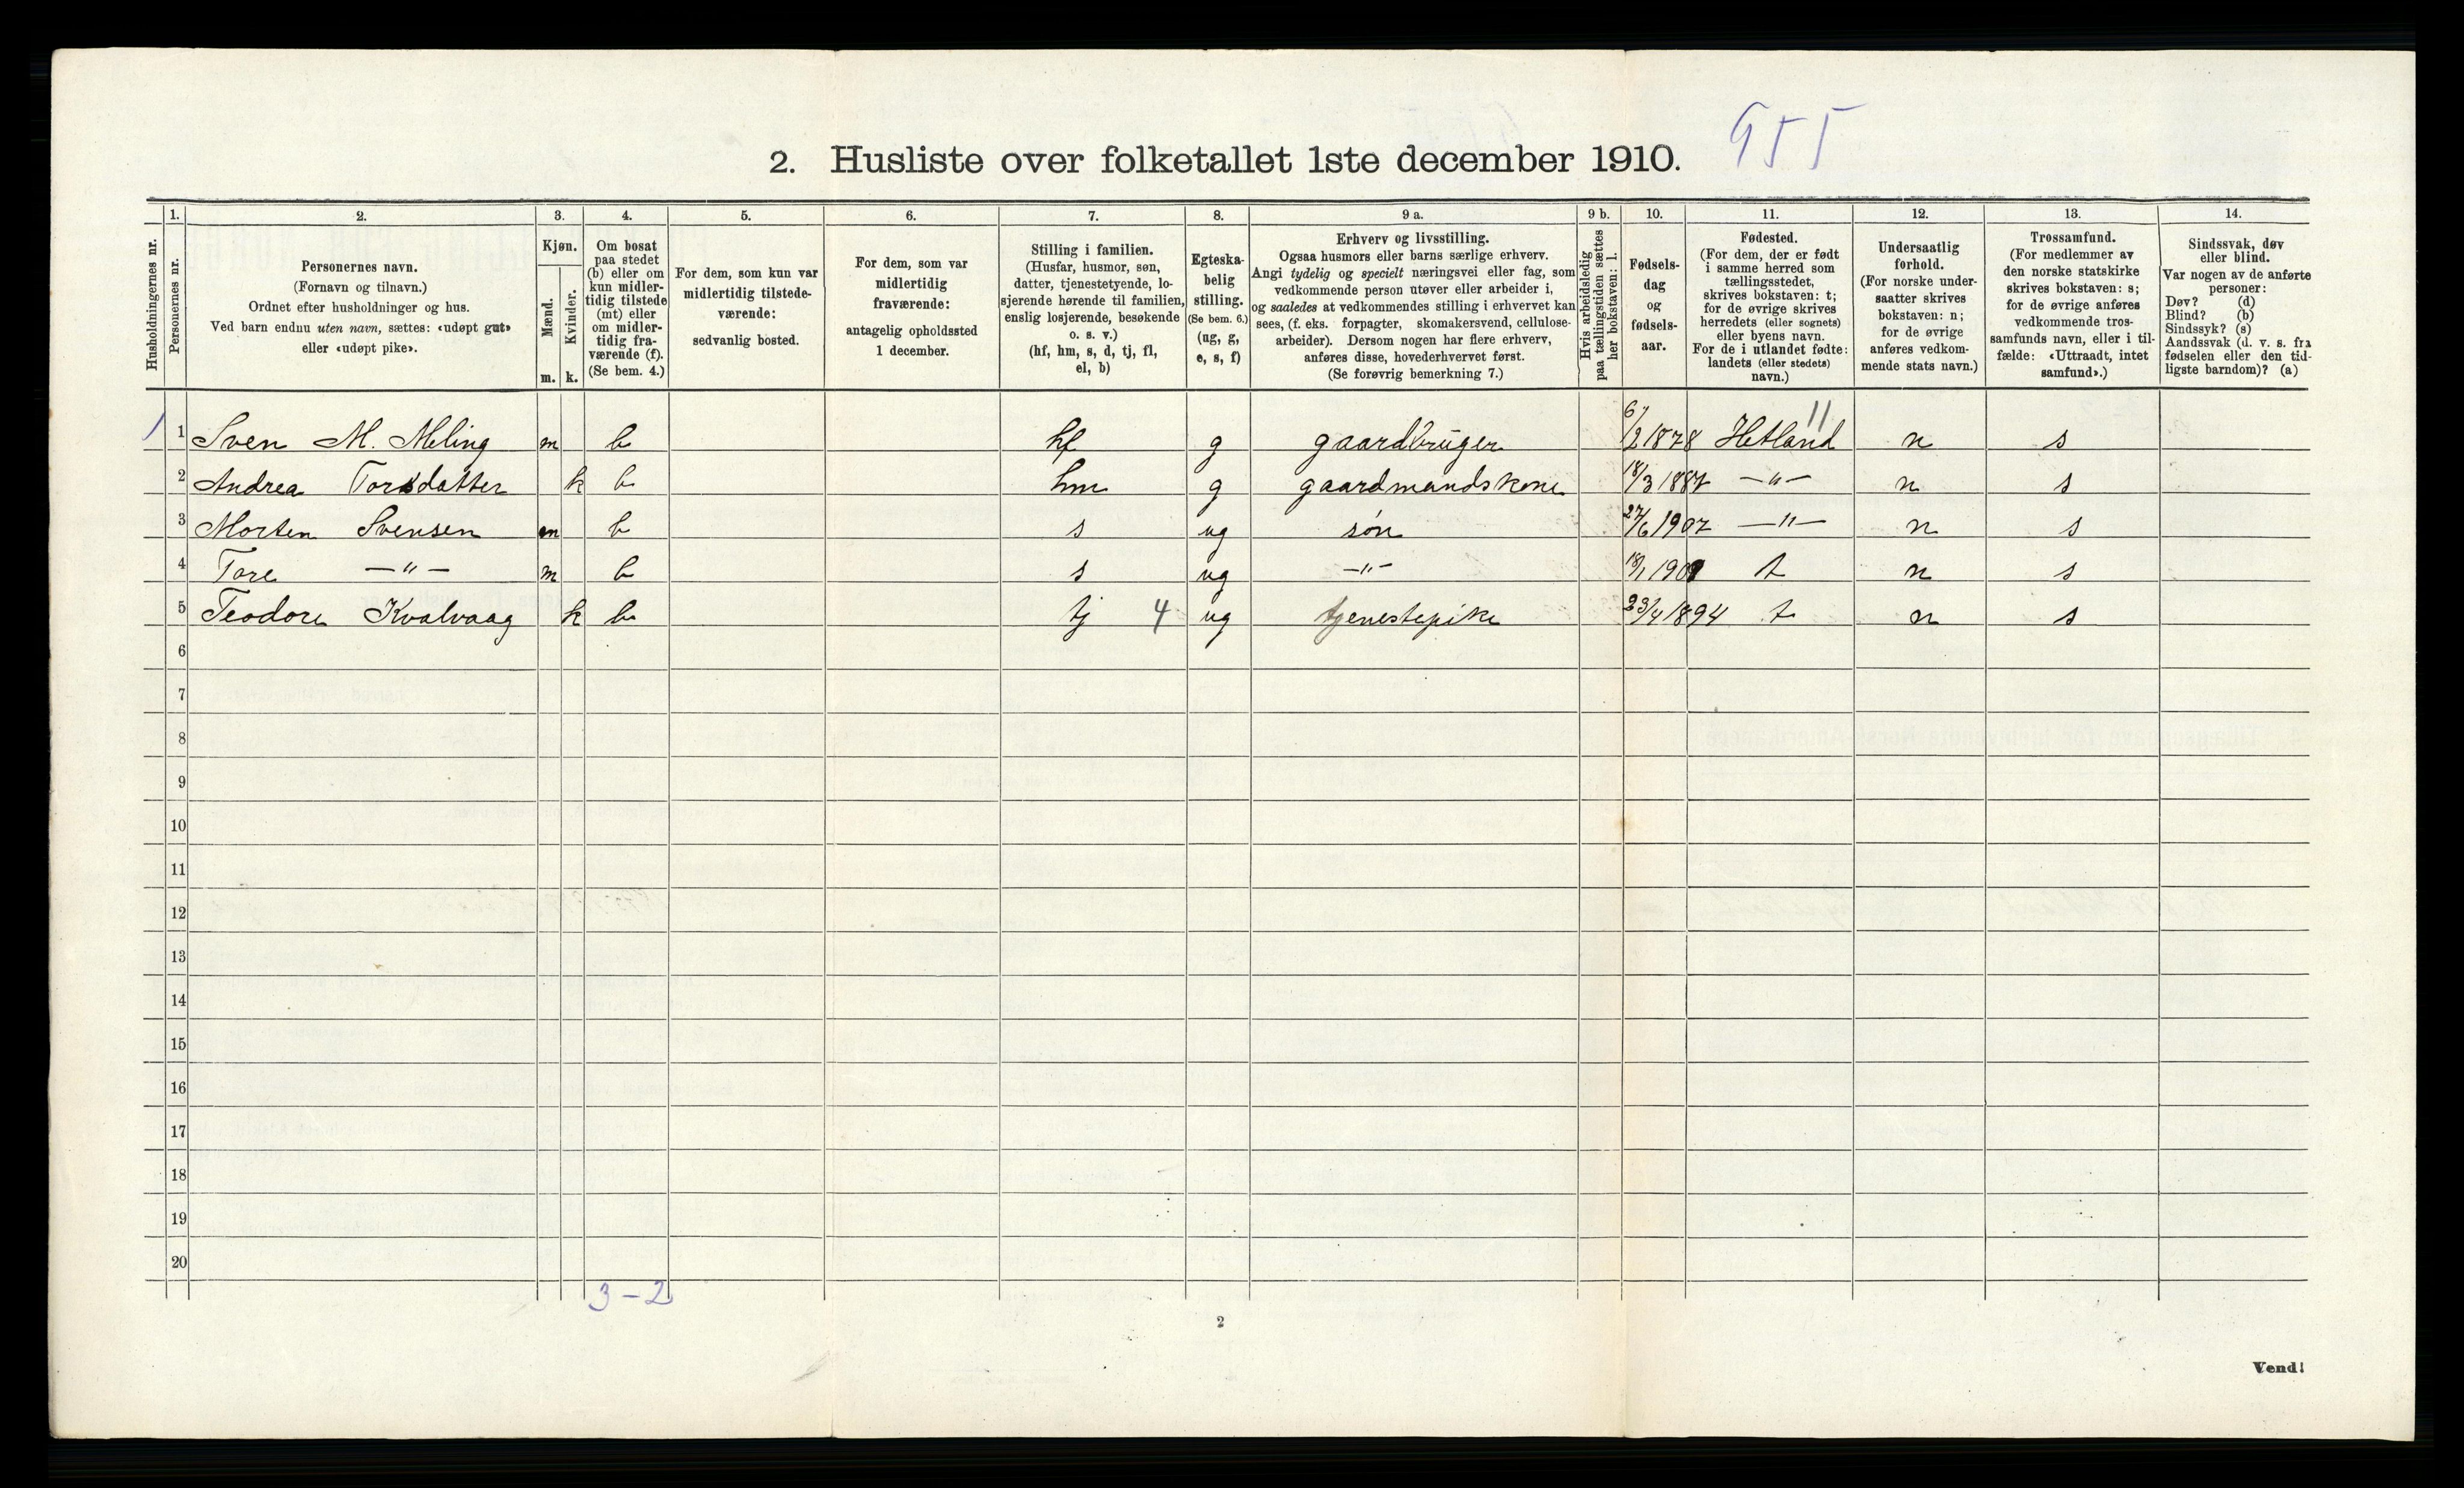 955
2. Husliste over folketallet 1ste december 1910.
1. 2. 3. 4. 5. 6. 7. 8. 9 a. 9 b. 10. 11. 12. 13. 14.
Husholdningernes nr.
Personernes nr.
Personernes navn.
(Fornavn og tilnavn.)
Ordnet efter husholdninger og hus.
Ved barn endnu uten navn, sættes: «udøpt gut»
eller «udøpt pike».
Kjøn.
Mænd.
Kvinder.
m. k.
Om bosat
paa stedet
(b) eller om
kun midler-
tidig tilstede
(mt) eller
om midler-
tidig fra-
værende (f).
(Se bem. 4.)
For dem, som kun var
midlertidig tilstede-
værende:
sedvanlig bosted.
For dem, som var
midlertidig
fraværende:
antagelig opholdssted
1 december.
Stilling i familien.
(Husfar, husmor, søn,
datter, tjenestetyende, lo-
sjerende hørende til familien,
enslig losjerende, besøkende
o. s. v.)
(hf, hm, s, d, tj, fl,
el, b)
Egteska-
belig
stilling.
(Se bem. 6.)
(ug, g,
e, s, f)
Erhverv og livsstilling.
Ogsaa husmors eller barns særlige erhverv.
Angi tydelig og specielt næringsvei eller fag, som
vedkommende person utøver eller arbeider i,
og saaledes at vedkommendes stilling i erhvervet kan
sees, (f. eks. forpagter, skomakersvend, cellulose-
arbeider). Dersom nogen har flere erhverv,
anføres disse, hovederhvervet først.
(Se forøvrig bemerkning 7.)
Hvis arbeidsledig
paa tællingstiden sættes
her bokstaven: l.
Fødsels-
dag
og
fødsels-
aar.
Fødested.
(For dem, der er født
i samme herred som
tællingsstedet,
skrives bokstaven: t;
for de øvrige skrives
herredets (eller sognets)
eller byens navn.
For de i utlandet fødte:
landets (eller stedets)
navn.)
Undersaatlig
forhold.
(For norske under-
saatter skrives
bokstaven: n;
for de øvrige
anføres vedkom-
mende stats navn.)
Trossamfund.
(For medlemmer av
den norske statskirke
skrives bokstaven: s;
for de øvrige anføres
vedkommende tros-
samfunds navn, eller i til-
fælde: «Uttraadt, intet
samfund».)
Sindssvak, døv
eller blind.
Var nogen av de anførte
personer:
Døv? (d)
Blind? (b)
Sindssyk? (s)
Aandssvak (d. v. s. fra
fødselen eller den tid-
ligste barndom)? (a)
11
1 1 Sven M. Meling m b hf g gaardbruger 6/2 1878 Hetland n s
2 Andrea Torsdatter k b hm g gaardmandskone 18/3 1887 —"— n s
3 Morten Svensen m b s ug søn 27/6 1907 —"— n s
4 Tore —"— m b s ug —"— 18/1 1909 t n s
5 Teodore Kvalvaag k b tj 4 ug tjenestepike 23/4 1894 t n s
6
7
8
9
10
11
12
13
14
15
16
17
18
19
20
3–2
2
Vend!